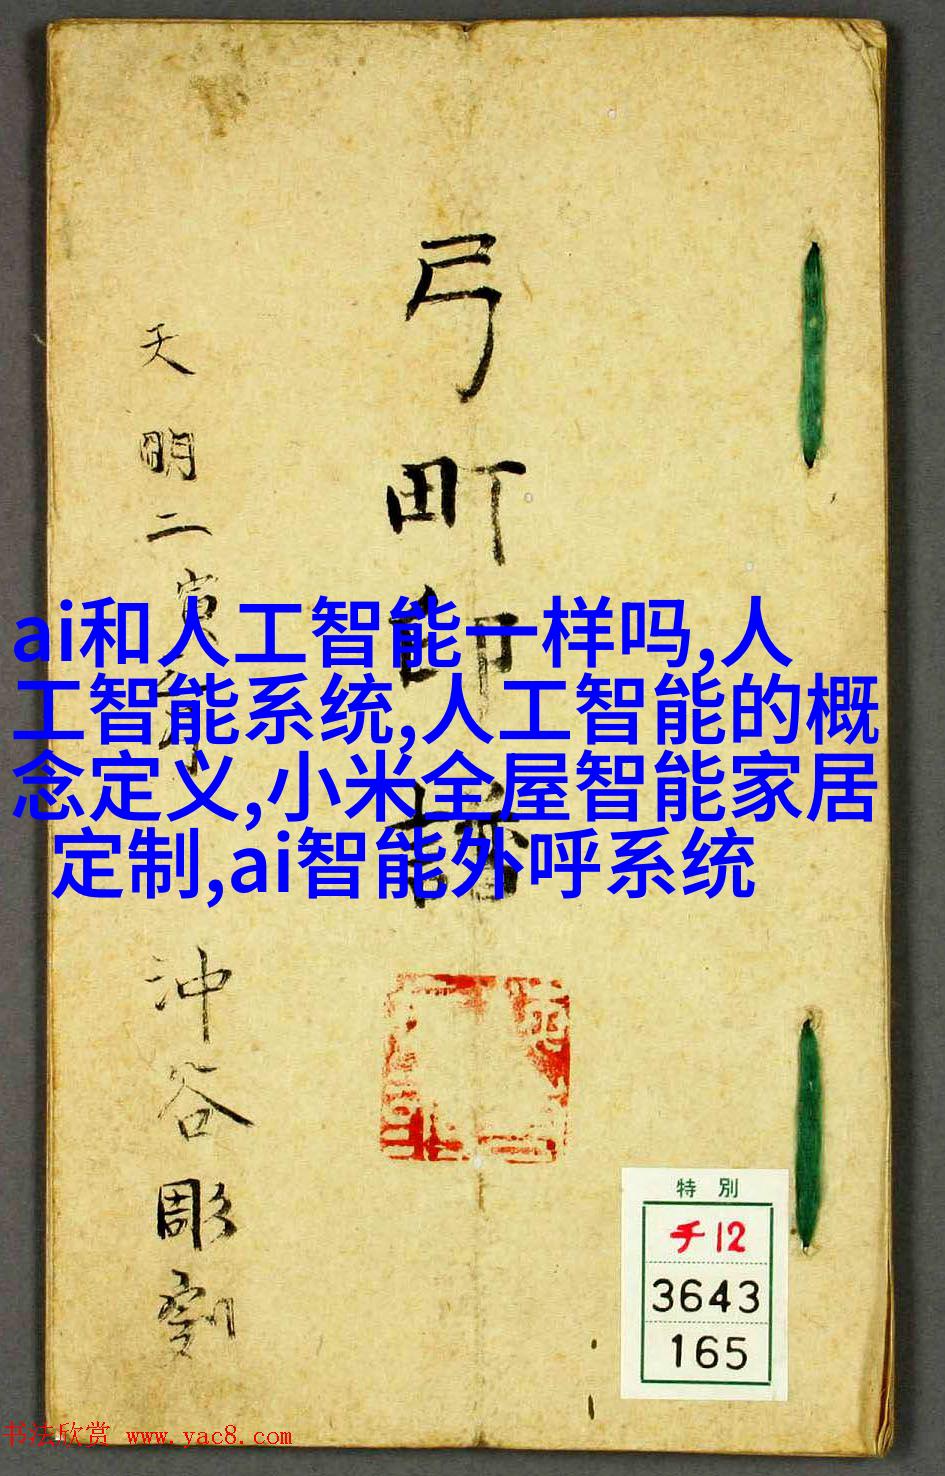 弓町印譜
天明二寅
沖谷彫刻
ai和人工智能一样吗,人
工智能系统,人工智能的概
念定义,小米全屋智能家居
定制,ai智能外呼系统
特別
チ12
3643
165
书法欣赏 www.yac8.com